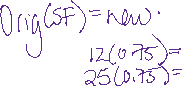 Orig(SF)=new.
12(0.75)=
25(0.75)=